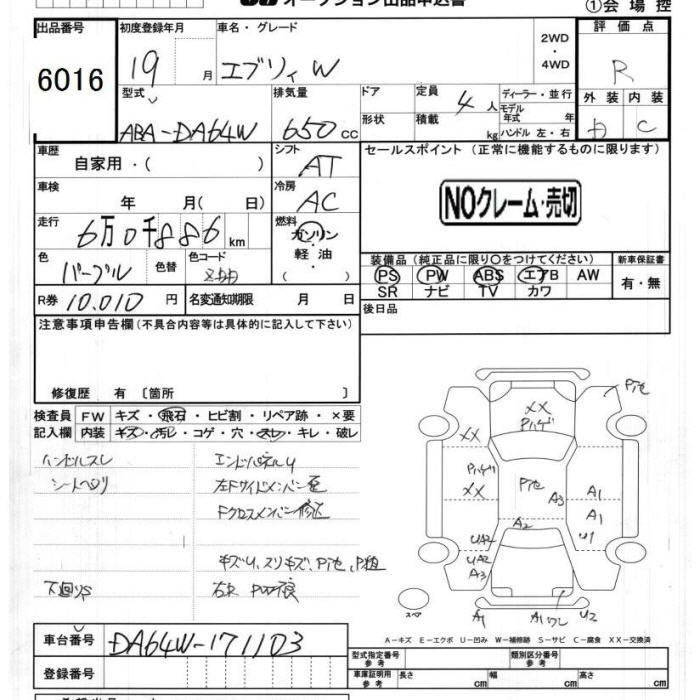 オークション出品申込書
①会場控
出品番号
6016
初度登録年月
19 月
車名・グレード
エブリィW
2WD
・
4WD
評価点
R
外装 内装
D C
型式
ABA-DA64W
排気量
650 cc
ドア
形状
定員 4 人
積載 kg
ディーラー・並行
モデル
年式 年
ハンドル 左・右
車歴
自家用・( )
シフト
AT
車検
年 月( 日)
冷房
AC
走行
6万0千886 km
燃料
ガソリン
・
軽油
( )
色
パープル
色替
色コード
R券 10.010 円
名変通知期限 月 日
セールスポイント (正常に機能するものに限ります)
NOクレーム・売切
装備品 (純正品に限り○をつけてください)
PS PW ABS エアB AW
SR ナビ TV カワ
新車保証書
有・無
後日品
注意事項申告欄 (不具合内容等は具体的に記入して下さい)
修復歴 有 〔箇所 〕
検査員
記入欄
FW キズ・飛石・ヒビ割・リペア跡・×要
内装 キズ・汚レ・コゲ・穴・スレ・キレ・破レ
ハンドルスレ
シートヘタリ
下廻りS
エンドパネルU
左Fサイドメンバー歪
Fクロスメンバー修正
キズU、スリキズ、P色、P粗
右R PW不良
P色
XX
Pハゲ
XX
Pハゲ
XX
P色
A3
A1
A1
U1
A2
UA2
UA2
A3
スペア
A1
A1 ワレ
U2
A－キズ E－エクボ U－凹み W－補修跡 S－サビ C－腐食 XX－交換済
車台番号
DA64W-171103
登録番号
型式指定番号
参考
類別区分番号
参考
車庫証明用
参考
長さ cm
幅 cm
高さ cm